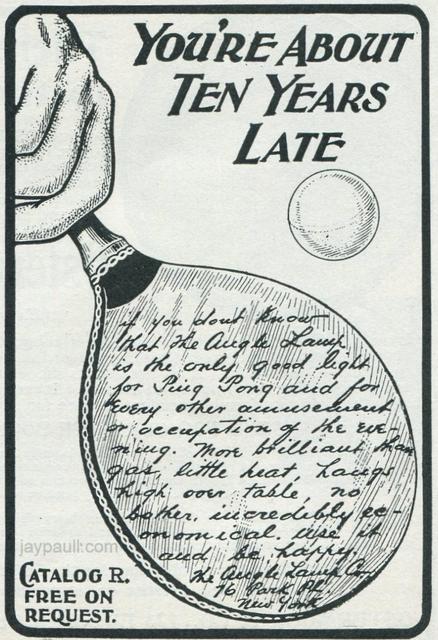 YOU'RE ABOUT
TEN YEARS
LATE
if you dont know
that the Angle Lamp
is the only good light
for Ping Pong and for
every other amusement
or occupation of the eve-
ning. More brilliant than
gas, little heat, hangs
high over table, no
bother, incredibly ec-
onomical. Use it
and be happy.
The Angle Lamp Co.
76 Park Pl.
New York
jaypaull.com
CATALOG R.
FREE ON
REQUEST.